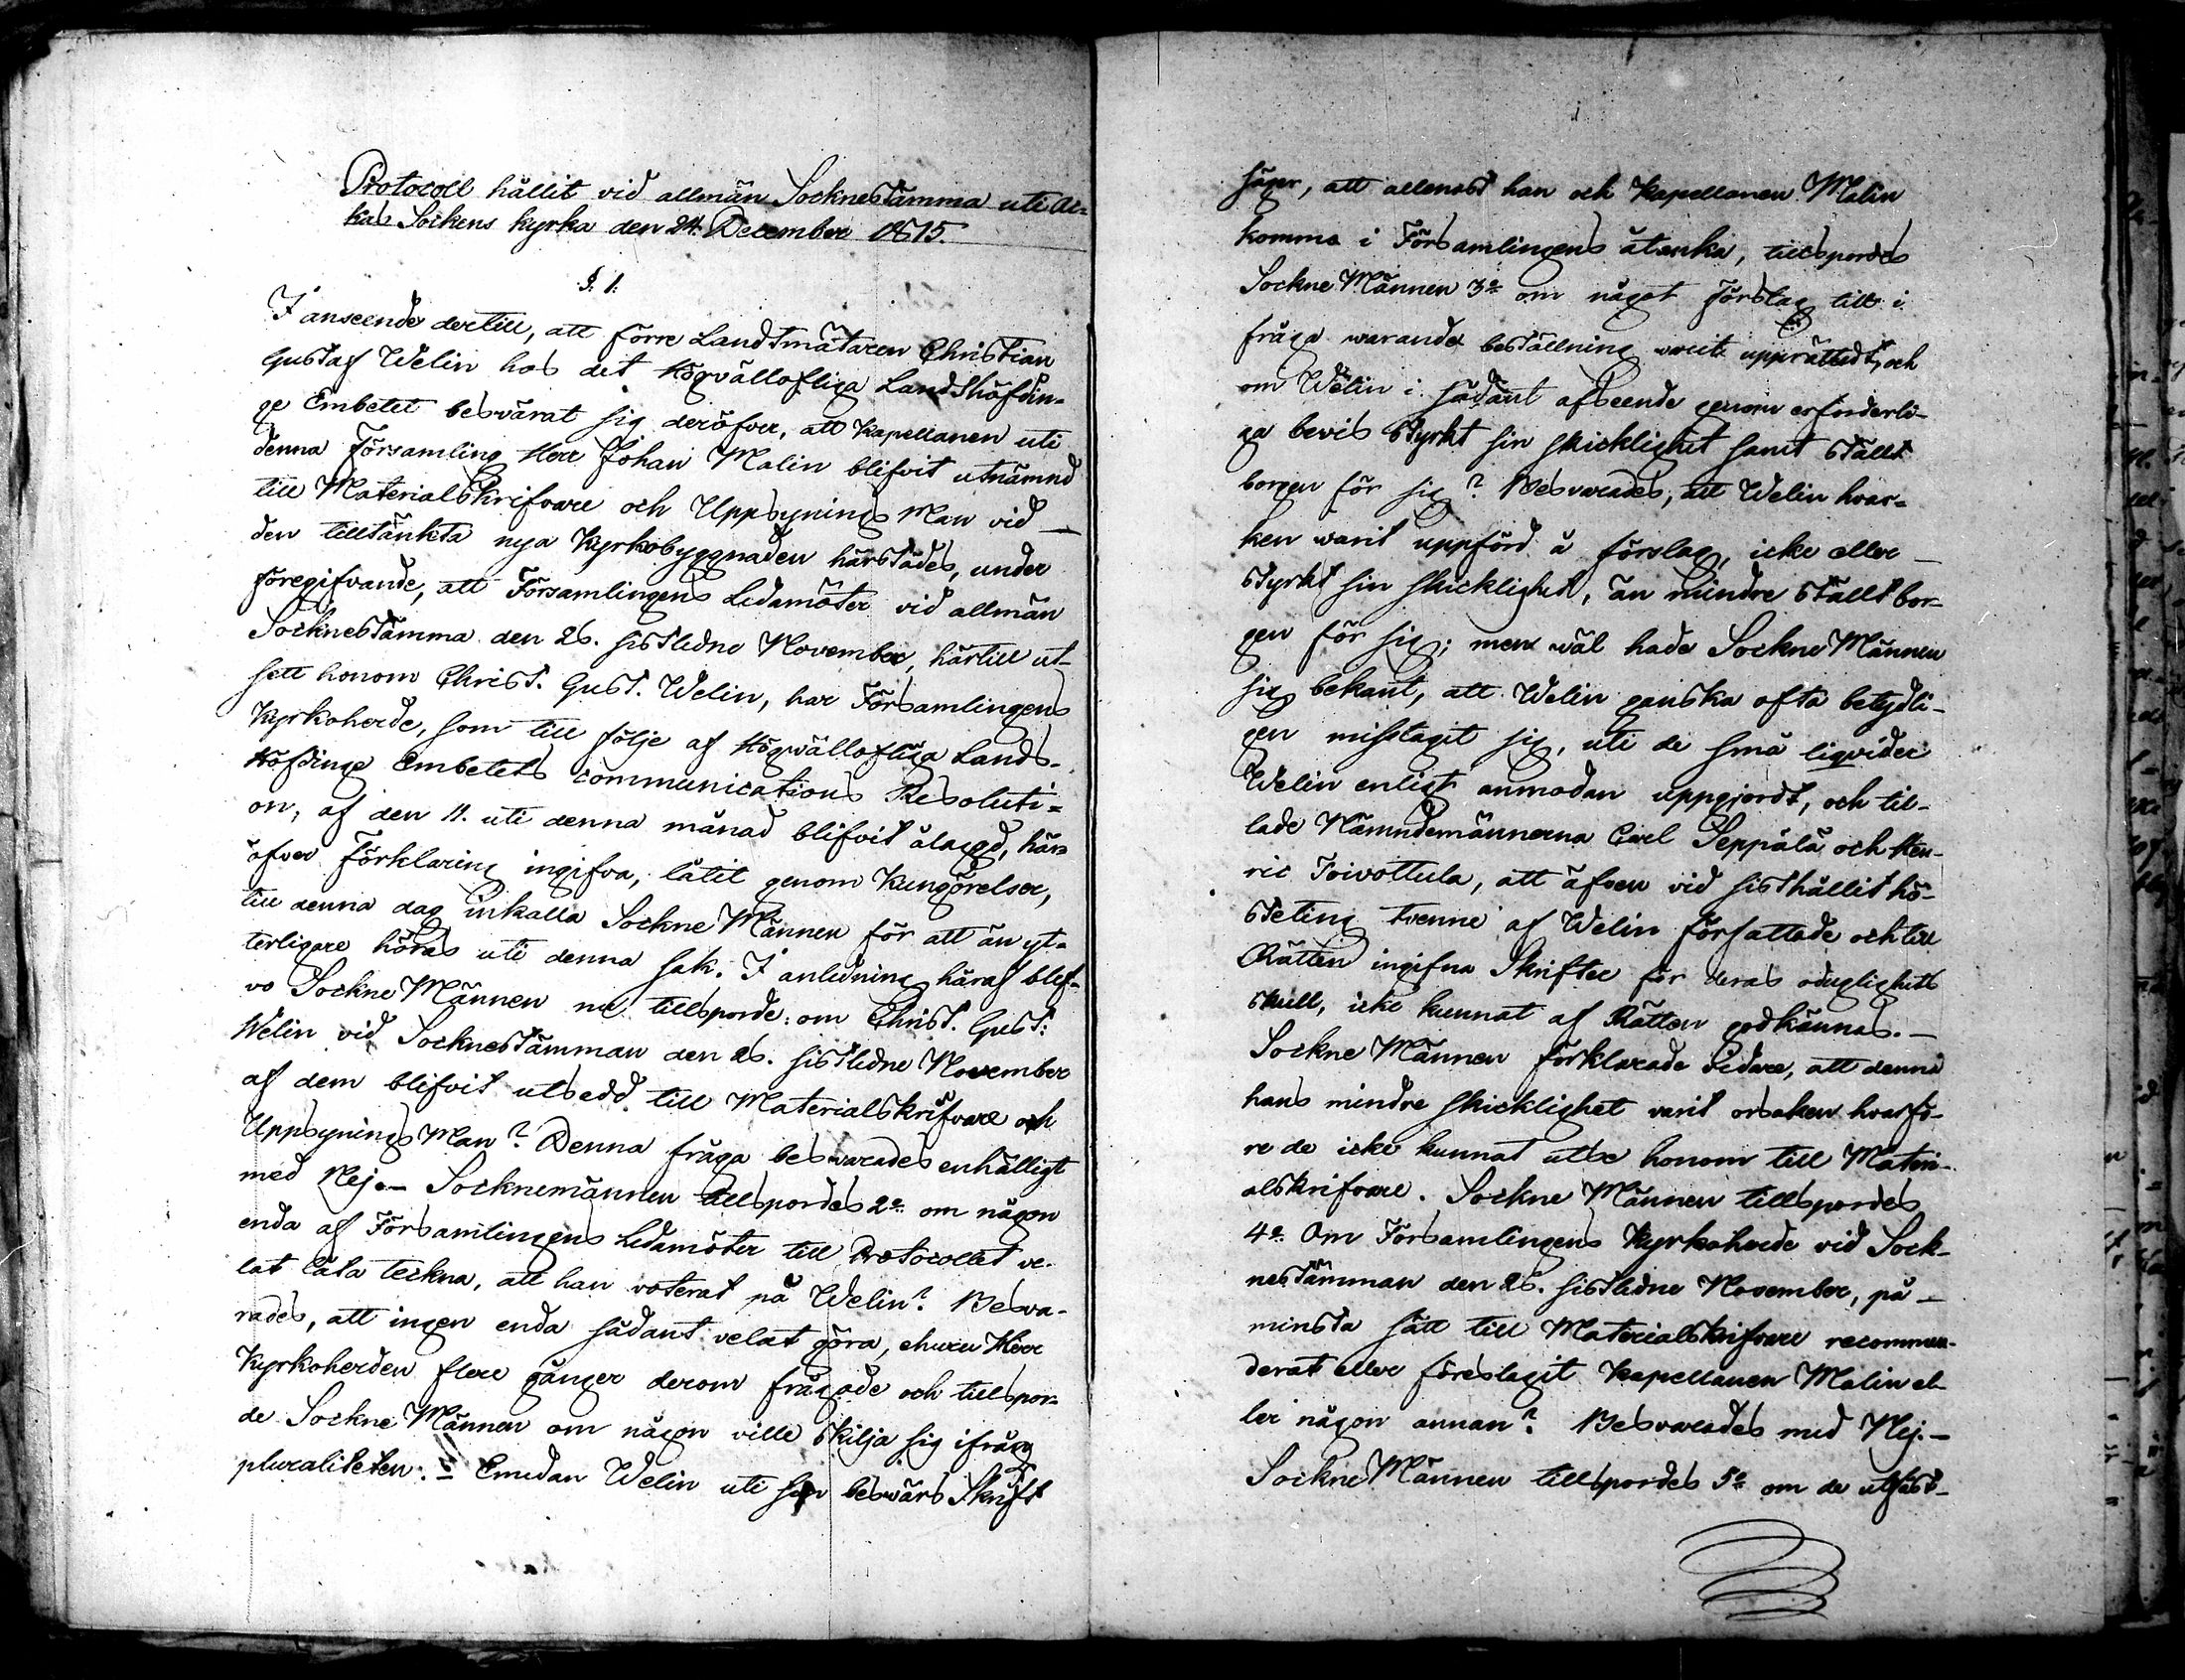 Protocoll hållit vid allmän Socknestämma uti Ac-
kas Sockens kyrka den 24. December 1815.
§. 1.
I anseende dertill, att förre Landtmätaren Christian
Gustaf Welin hos det Högvällofliga Landshöfdin-
ge Embetet besvärat sig deröfver, att Kapellanen uti
denna Församling Herr Johan Malin blifvit utnämnd
till Materialskrifvare och Uppsynings Man vid
den tilltänkta nya Kyrkobyggnaden härstädes, under
föregifvande, att Församlingens Ledamöter vid allmän
Socknestämma den 26. sistledne November, härtill ut-
sett honom Christ. Gust. Welin, har Församlingens
Kyrkoherde, som till följe af Högwällofliga Lands-
Höfdinge Embetets communications Resoluti=
on, af den 11. uti denna månad blifvit ålaggd, här-
öfver Förklaring ingifva, låtit genom Kungörelser,
till denna dag inkalla Sockne Männen för att än yt-
terligare höras uti denna sak. I anledning häraf blef-
vo Sockne Männen nu tillsporde: om Christ. Gust:
Welin vid Socknestämman den 26. sistledne November
af dem blifvit utsedd till Materialskrifvare och
Uppsynings Man? Denna fråga besvarades enhälligt
med Nej.— Socknemännen tillspordes 2:o om någon
enda af Församlingens Ledamöter till Protocollet ve-
lat låta teckna, att han voterat på Welin? Besva-
rades, att ingen enda sådant velat göra, ehuru Herr
Kyrkoherden flere gånger derom frågade och tillspor-
de Sockne Männen om någon ville skilja sig ifrån
pluraliteten. — Emedan Welin uti sin besvärs Skrift
säger, att allenast han och Kapellanen Malin
komma i Församlingens åtanka, tillspordes
Sockne Männen 3:o om något Förslag till i
fråga warande beställning varit upprättadt, och
om Welin i sådant afseende genom erforderli-
ga bevis styrkt sin skicklighet samt ställt
borgen för sig? Besvarades, att Welin hvar-
ken warit uppförd å förslag, icke eller
styrkt sin skicklighet, än mindre ställt bor-
gen för sig; men wäl hade Sockne Männen
sig bekant, att Welin ganska ofta betydli-
gen misstagit sig, uti de små liqvider
Welin enligt anmodan uppgjordt, och til-
lade Nämndemännerna Carl Seppälä och Hen-
ric Toivottula, att äfven vid sisthållit hö-
steting tvenne af Welin författade och till
Rätten ingifna Skrifter för deras oduglighets
skull, icke kunnat af Rätten godkännas.—
Sockne Männen förklarade vidare, att denna
hans mindre skicklighet varit orsaken hvarfö-
re de icke kunnat utse honom till Materi-
alskrifvare. Sockne Männen tillspordes
4:o Om Församlingens Kyrkoherde vid Sock-
nestämman den 26. sistledne November, på
minsta sätt till Materialskrifvare recommen-
derat eller föreslagit Kapellanen Malin el-
ler någon annan? Besvarades med Nej.—
Sockne Männen tillspordes 5:o om de utfäst-